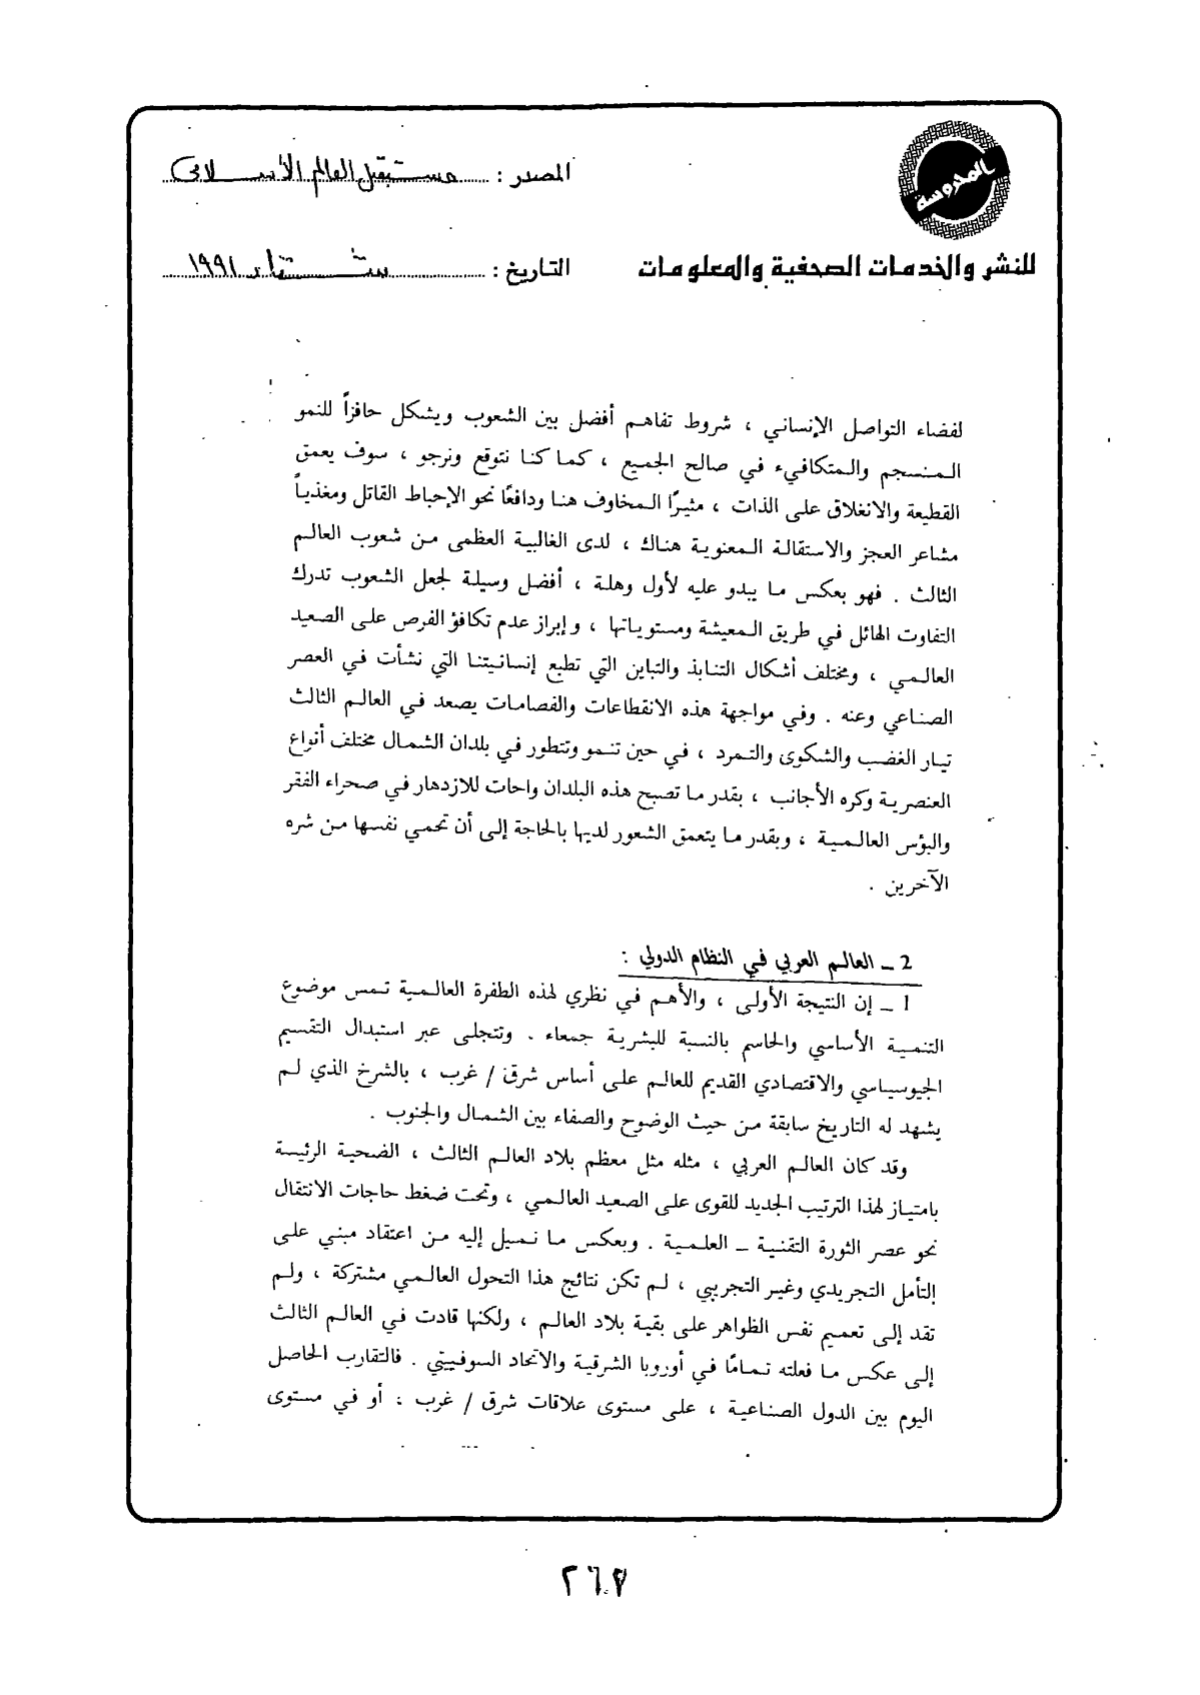 المحروسة
المصدر : مستقبل العالم الأسلامى
للنشر والخدمات الصحفية والمعلومات
التاريخ : شتاء ١٩٩١
لفضاء التواصل الإنساني ، شروط تفاهم أفضل بين الشعوب ويشكل حافزاً للنمو
المنسجم والمتكافيء في صالح الجميع ، كما كنا نتوقع ونرجو ، سوف يعمق
القطيعة والانغلاق على الذات ، مثيرًا المخاوف هنا ودافعًا نحو الإحباط القاتل ومغذياً
مشاعر العجز والاستقالة المعنوية هناك ، لدى الغالبية العظمى من شعوب العالم
الثالث . فهو بعكس ما يبدو عليه لأول وهلة ، أفضل وسيلة لجعل الشعوب تدرك
التفاوت الهائل في طريق المعيشة ومستوياتها ، وإبراز عدم تكافؤ الفرص على الصعيد
العالمي ، ومختلف أشكال التنابذ والتباين التي تطبع إنسانيتنا التي نشأت في العصر
الصناعي وعنه . وفي مواجهة هذه الانقطاعات والفصامات يصعد في العالم الثالث
تيار الغضب والشكوى والتمرد ، في حين تنمو وتتطور في بلدان الشمال مختلف أنواع
العنصرية وكره الأجانب ، بقدر ما تصبح هذه البلدان واحات للازدهار في صحراء الفقر
والبؤس العالمية ، وبقدر ما يتعمق الشعور لديها بالحاجة إلى أن تحمي نفسها من شره
الآخرين .
2 ـ العالم العربي في النظام الدولي :
1 ـ إن النتيجة الأولى ، والأهم في نظري لهذه الطفرة العالمية تمس موضوع
التنمية الأساسي والحاسم بالنسبة للبشرية جمعاء . وتتجلى عبر استبدال التقسيم
الجيوسياسي والاقتصادي القديم للعالم على أساس شرق / غرب ، بالشرخ الذي لم
يشهد له التاريخ سابقة من حيث الوضوح والصفاء بين الشمال والجنوب .
وقد كان العالم العربي ، مثله مثل معظم بلاد العالم الثالث ، الضحية الرئيسة
بامتياز لهذا الترتيب الجديد للقوى على الصعيد العالمي ، وتحت ضغط حاجات الانتقال
نحو عصر الثورة التقنية ـ العلمية . وبعكس ما نميل إليه من اعتقاد مبني على
التأمل التجريدي وغير التجريبي ، لم تكن نتائج هذا التحول العالمي مشتركة ، ولم
تقد إلى تعميم نفس الظواهر على بقية بلاد العالم ، ولكنها قادت في العالم الثالث
إلى عكس ما فعلته تمامًا في أوروبا الشرقية والاتحاد السوفييتي . فالتقارب الحاصل
اليوم بين الدول الصناعية ، على مستوى علاقات شرق / غرب : أو في مستوى
٢٦٧